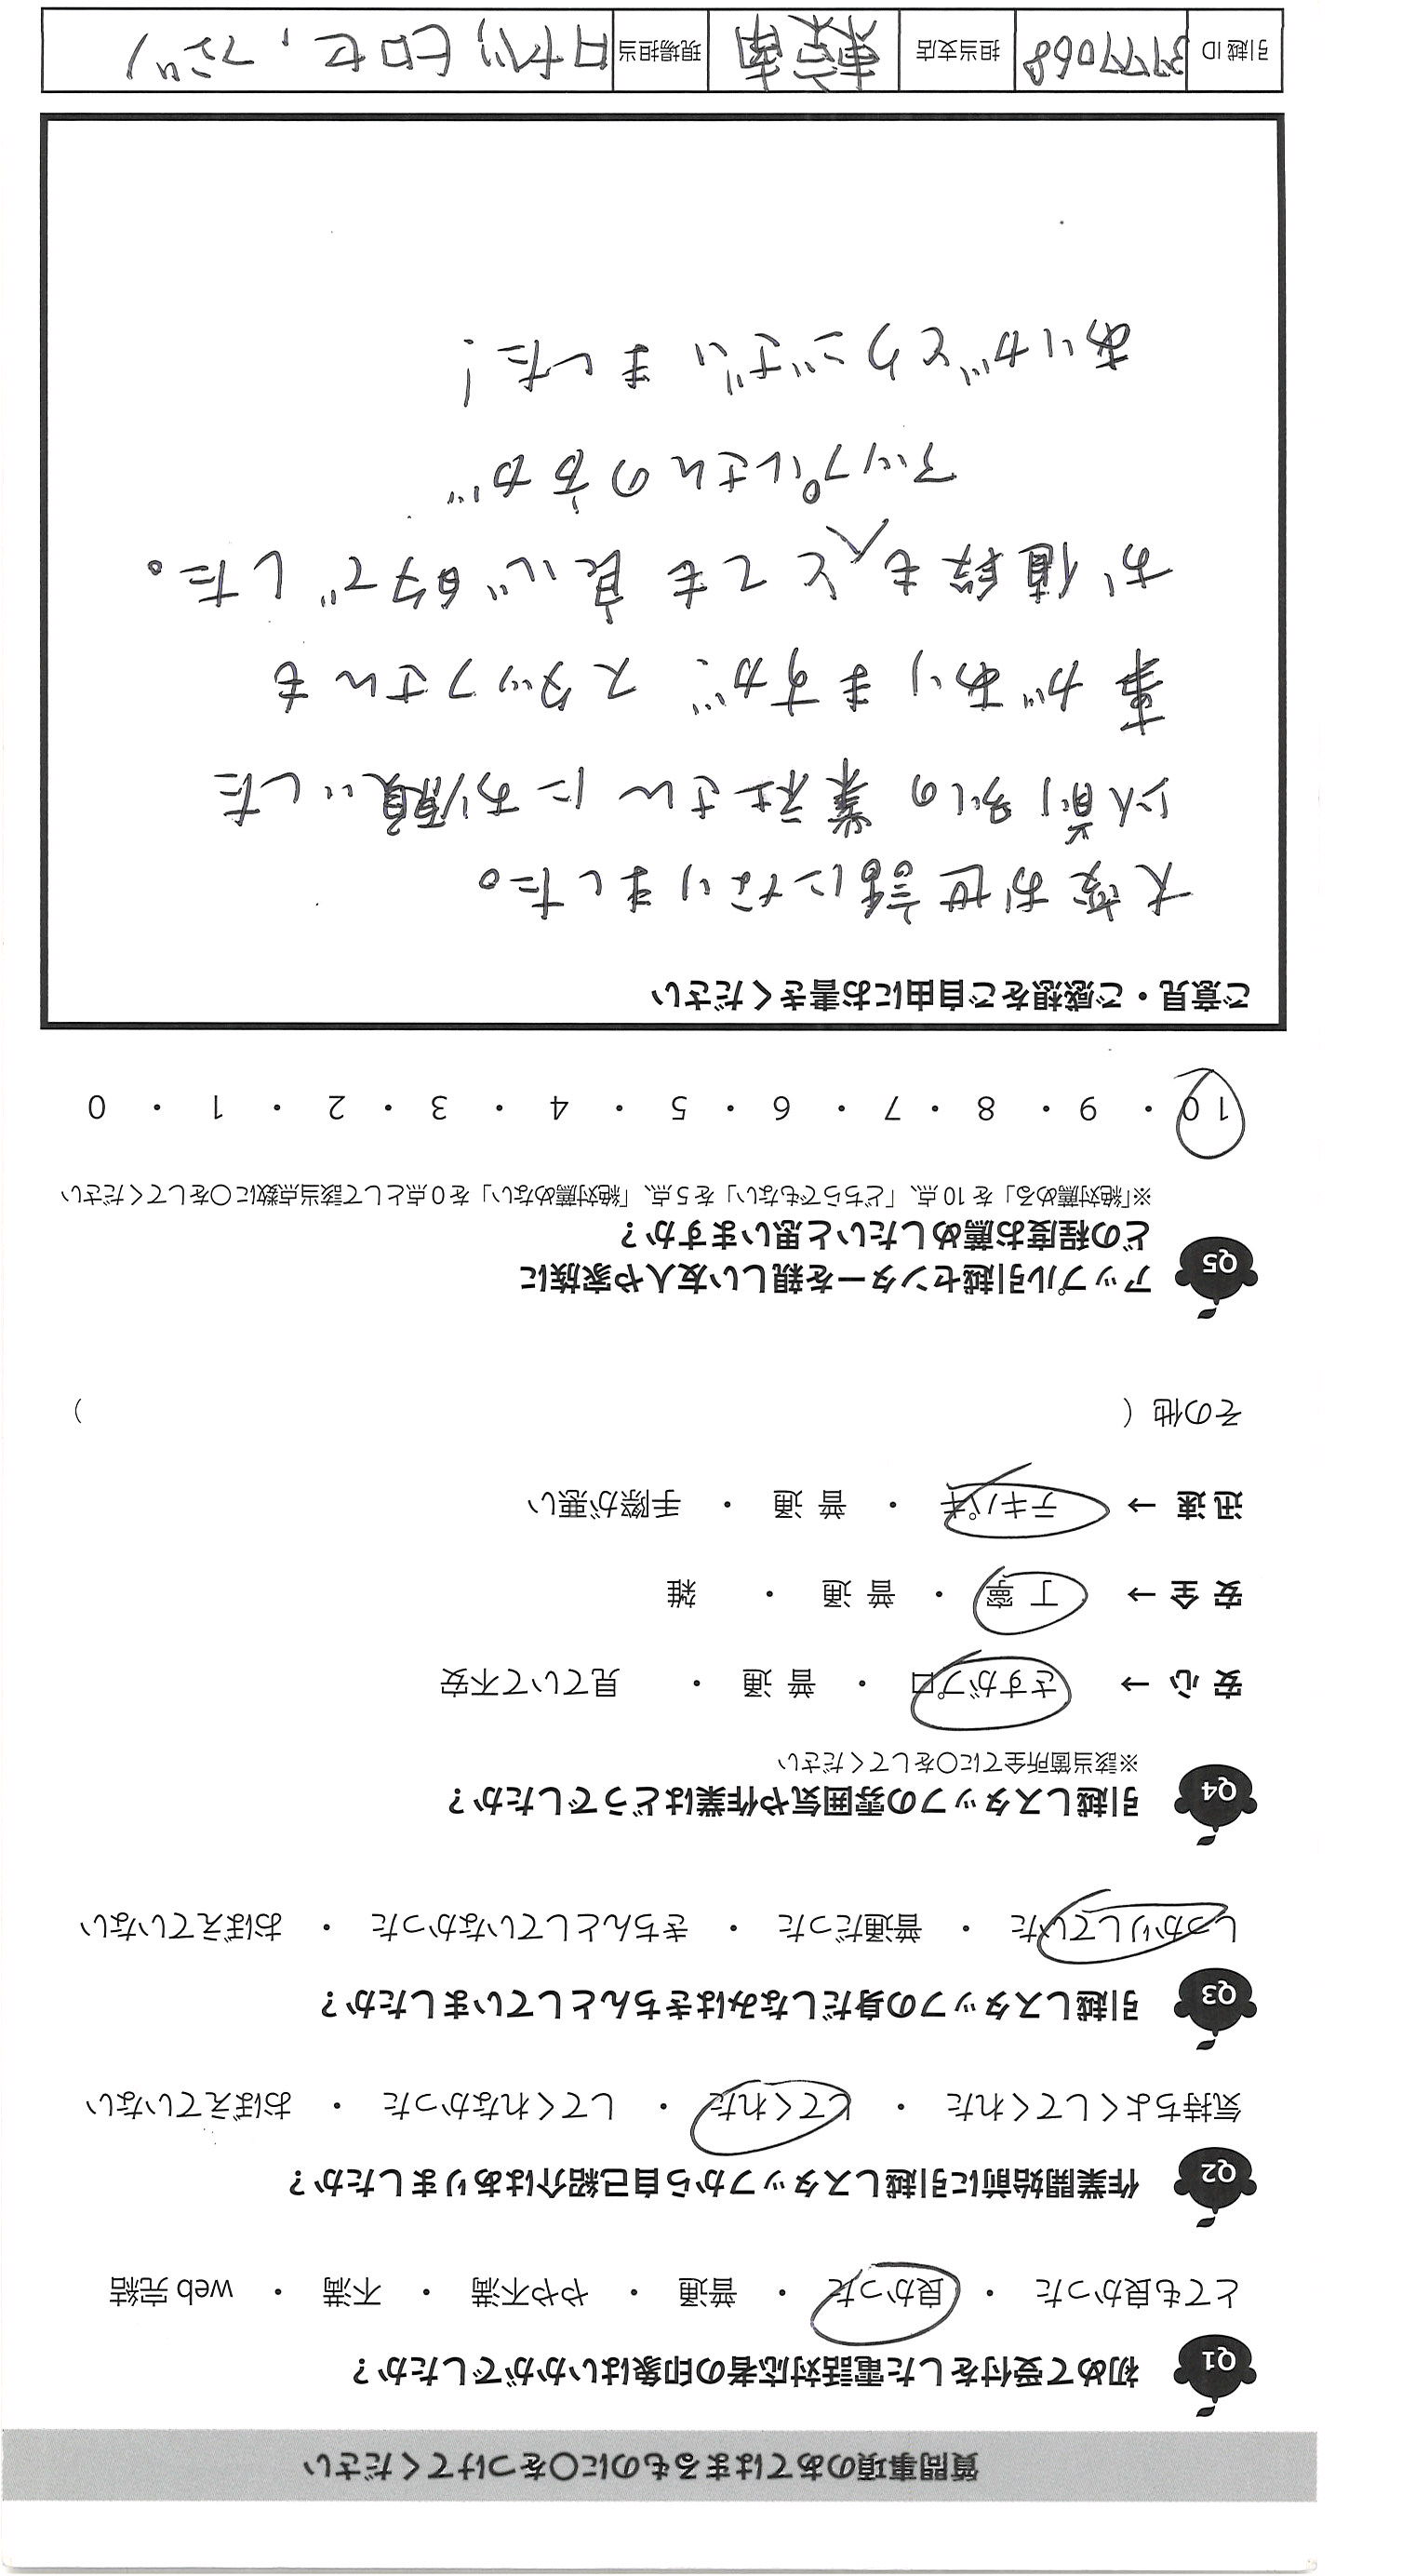 質問事項のあてはまるものに○をつけてください
Q1 初めて受付をした電話対応者の印象はいかがでしたか？
とても良かった ・ 良かった ・ 普通 ・ やや不満 ・ 不満 ・ web 完結
Q2 作業開始前に引越しスタッフから自己紹介はありましたか？
気持ちよくしてくれた ・ してくれた ・ してくれなかった ・ おぼえていない
Q3 引越しスタッフの身だしなみはきちんとしていましたか？
しっかりしていた ・ 普通だった ・ きちんとしていなかった ・ おぼえていない
Q4 引越しスタッフの雰囲気や作業はどうでしたか？
※該当箇所全てに○をしてください
安 心 → さすがプロ ・ 普 通 ・ 見ていて不安
安 全 → 丁 寧 ・ 普 通 ・ 雑
迅 速 → テキパキ ・ 普 通 ・ 手際が悪い
その他（ ）
Q5 アップル引越センターを親しい友人や家族に
どの程度お薦めしたいと思いますか？
※「絶対薦める」を 10 点、「どちらでもない」を 5 点、「絶対薦めない」を 0 点として該当点数に○をしてください
10 ・ 9 ・ 8 ・ 7 ・ 6 ・ 5 ・ 4 ・ 3 ・ 2 ・ 1 ・ 0
ご意見・ご感想をご自由にお書きください
大変お世話になりました。
以前別の業社さんにお願いした
事がありますが、スタッフさんも
お値段もとても良心的でした。
アップルさんの方が
ありがとうございました！
引越 ID 3777068 担当支店 東京南 現場担当 ヒロセ